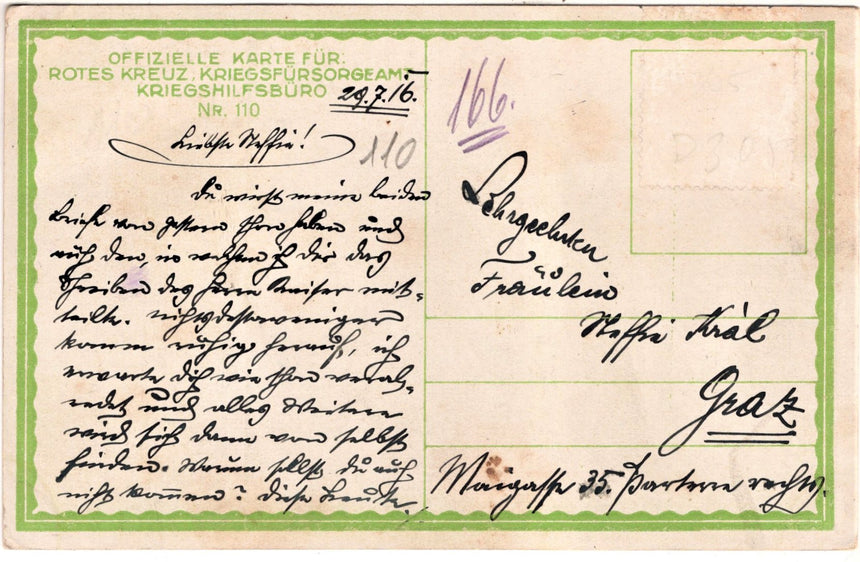 OFFIZIELLE KARTE FÜR:
ROTES KREUZ, KRIEGSFÜRSORGEAMT
KRIEGSHILFSBÜRO
NR. 110
29.7.16.
Liebste Steffie!
110
Du wirst meine beiden
Briefe von gestern schon haben und
auch den, in welchem ich Dir das
Schreiben des Herrn Kaiser mit=
teilte. Nichtsdestoweniger
komm ruhig herauf, ich
erwarte dich wie schon verab=
redet und alles Weitere
wird sich dann von selbst
finden. Warum sollst du auch
nicht kommen? Diese Leute
166.
Fräulein
Steffie Král
Graz
Maigasse 35. Parterre rechts.